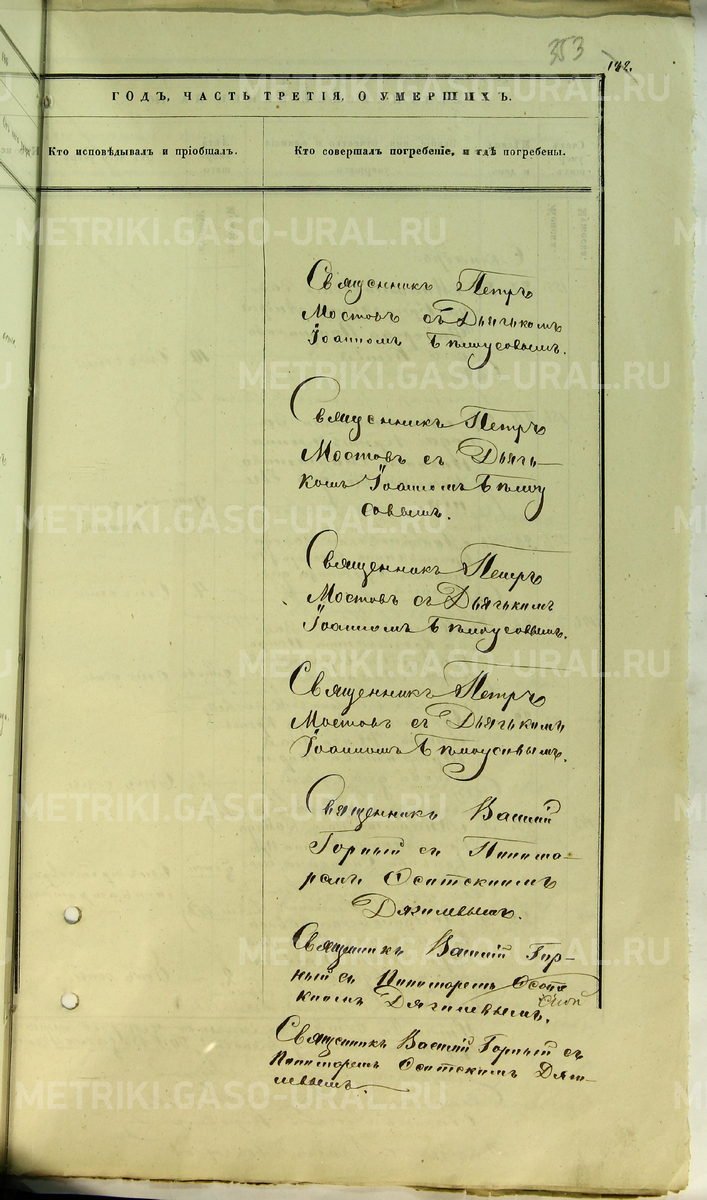 353
142.
ГОДЪ, ЧАСТЬ ТРЕТІЯ, О УМЕРШИХЪ.
Кто исповѣдывалъ и пріобщалъ.
Кто совершалъ погребеніе, и гдѣ погребены.
Священникъ Петръ
Мостовъ съ Дьячькомъ
Іоанномъ Бѣлоусовымъ.
Священникъ Петръ
Мостовъ съ Дьячь-
комъ Іоанномъ Бѣлоу
совымъ.
Священникъ Петръ
Мостовъ съ Дьячькомъ
Іоанномъ Бѣлоусовымъ.
Священникъ Петръ
Мостовъ съ Дьячькомъ
Іоанномъ Бѣлоусовымъ.
Священникъ Василій
Горный съ Понома-
ремъ
Священникъ Василій Гор-
ный съ Пономаремъ
Священникъ Василій Горный съ
Пономаремъ
METRIKI.GASO-URAL.RU